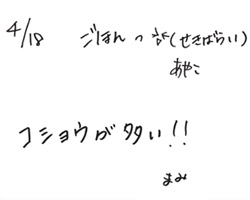 4/18 ごほんっ(せきばらい)
あやこ
コショウが多い!!
まみ